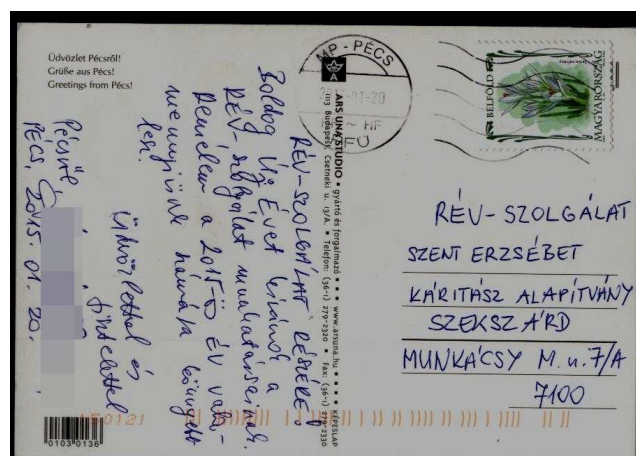 Üdvözlet Pécsről!
Grüße aus Pécs!
Greetings from Pécs!
MP - PÉCS
BELFÖLD
MAGYARORSZÁG
ARS UNA STUDIO • gyártó és forgalmazó • www.arsuna.hu • KÉPESLAP
1113 Budapest, Csetneki u. 13/A. • Telefon: (36-1) 279-2320 • Fax: (36-1) 279-2330
RÉV-SZOLGÁLAT RÉSZÉRE!
Boldog Új Évet kívánok a
RÉV-szolgálat munkatársainak.
Remélem a 2015-ös ÉV vala-
mennyiünk számára könnyebb
lesz.
Üdvözlettel és
tisztelettel
Pécsről
PÉCS, 2015. 01. 20.
RÉV-SZOLGÁLAT
SZENT ERZSÉBET
KÁRITÁSZ ALAPÍTVÁNY
SZEKSZÁRD
MUNKÁCSY M. u. 7/A
7100
150121
0103 0136